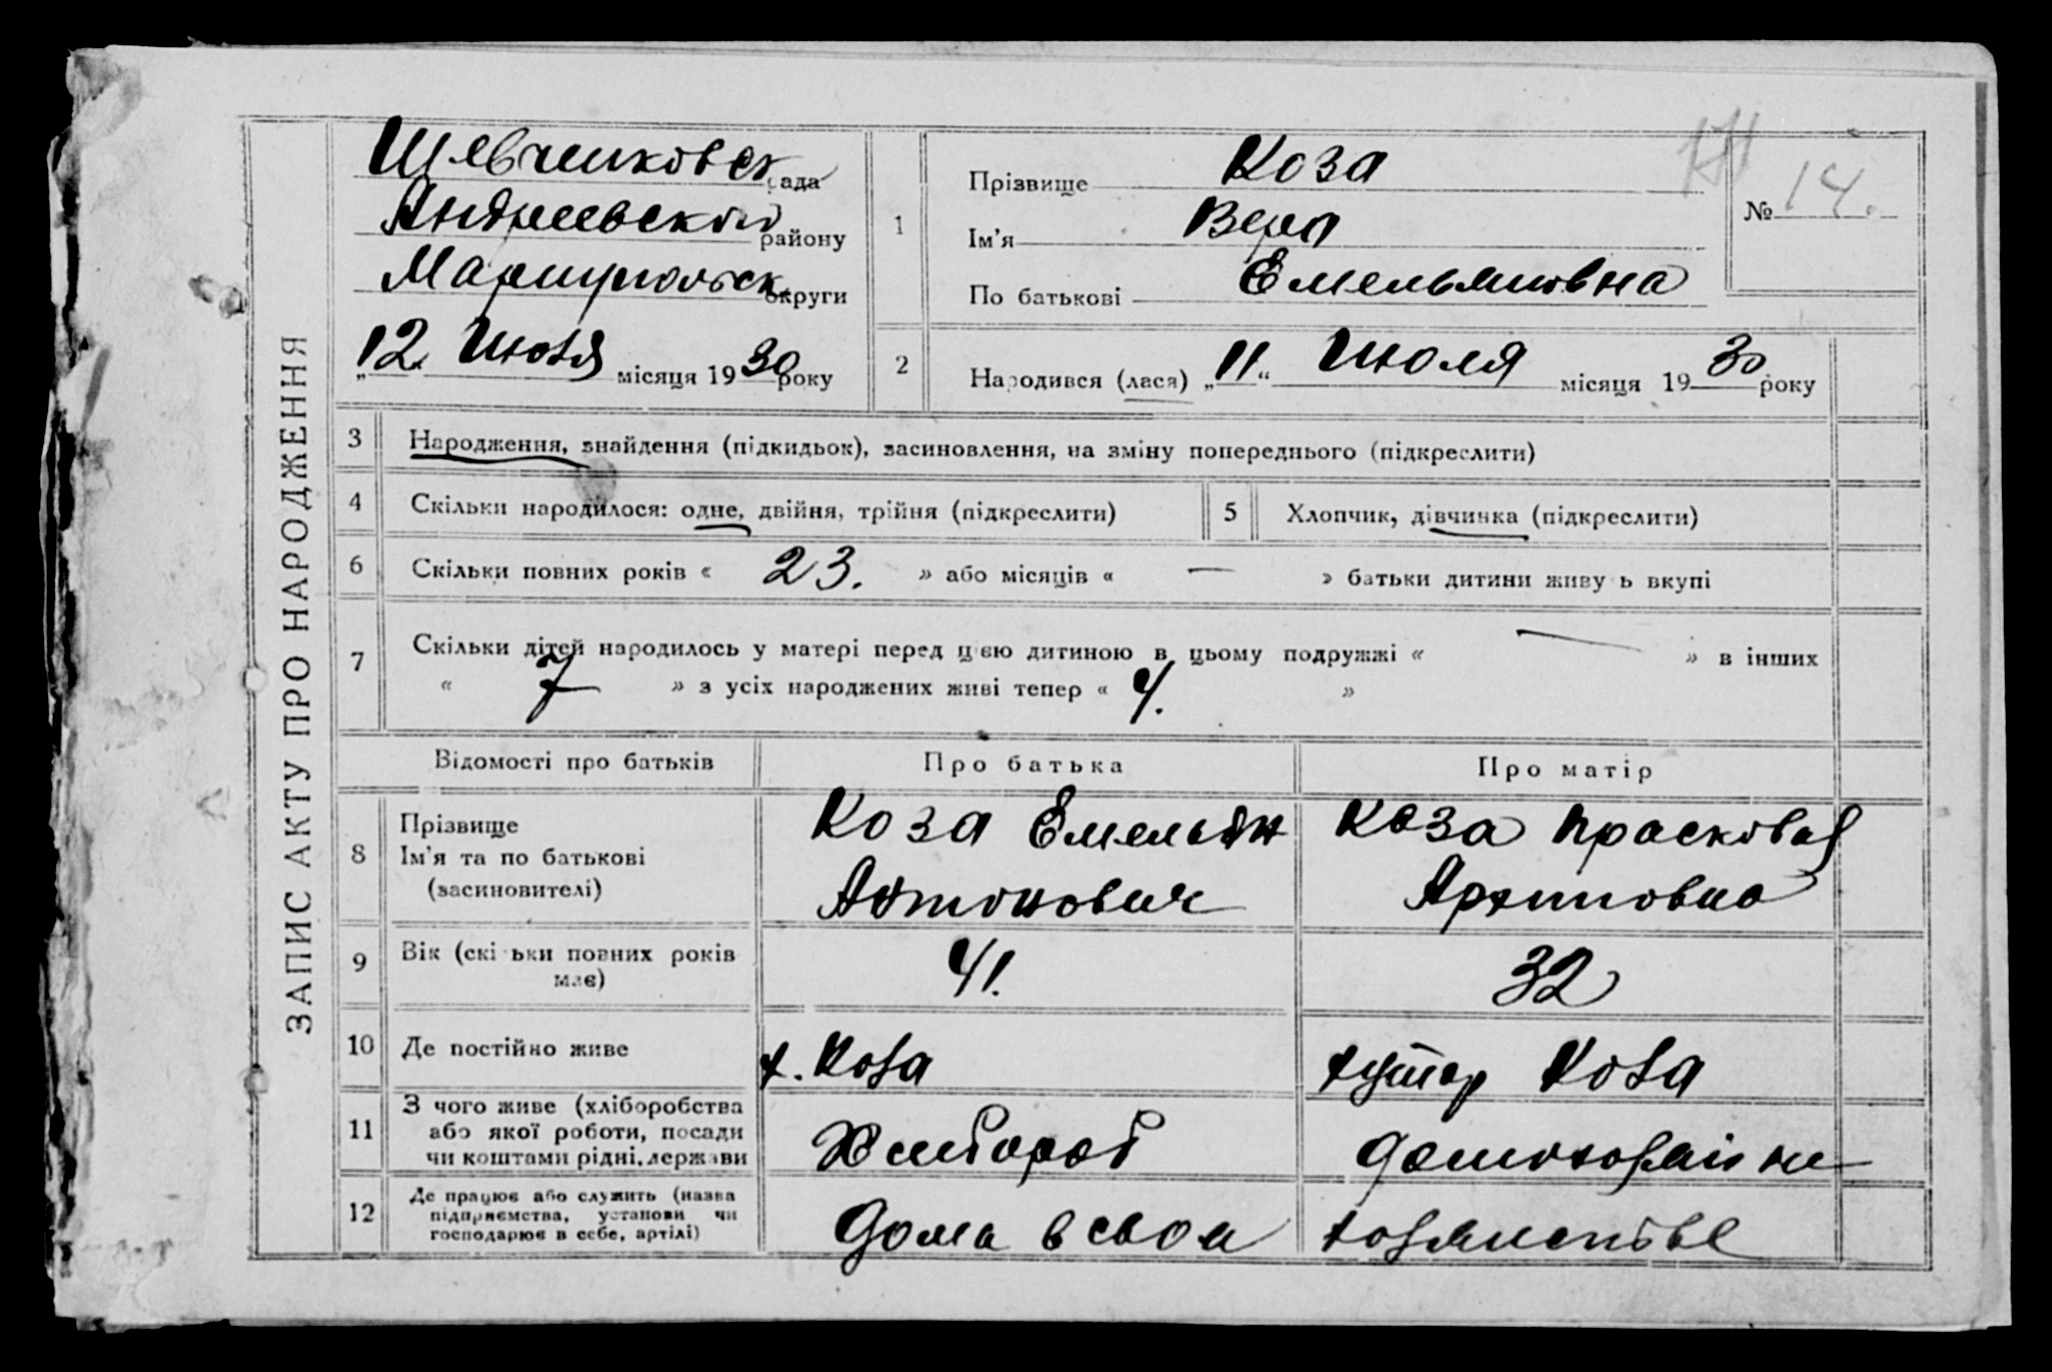 ЗАПИС АКТУ ПРО НАРОДЖЕННЯ
Шевченковск рада
Андреевского району
Мариупольск. округи
„12 Июля місяця 1930 року
1
Прізвище Коза
Ім'я Вера
По батькові Емельяновна
№ 14.
2
Народився (лася) „11“ Июля місяця 1930 року
3 Народження, знайдення (підкидьок), засиновлення, на зміну попереднього (підкреслити)
4 Скільки народилося: одне, двійня, трійня (підкреслити)
5 Хлопчик, дівчинка (підкреслити)
6 Скільки повних років « 23. » або місяців « — » батьки дитини живу ь вкупі
7 Скільки дітей народилось у матері перед цією дитиною в цьому подружжі « — » в інших
« 7 » з усіх народжених живі тепер « 4. »
Відомості про батьків Про батька Про матір
8 Прізвище
Ім'я та по батькові
(засиновителі)
Коза Емельян
Антонович
Коза Прасковья
Архиповна
9 Вік (скі ьки повних років
має)
41.
32
10 Де постійно живе х. Коза хутор Коза
11 З чого живе (хліборобства
або якої роботи, посади
чи коштами рідні, держави
Хлебороб
домохозяйке
12 Де працює або служить (назва
підприємства, установи чи
господарює в себе, артілі)
дома в свом хозяистве